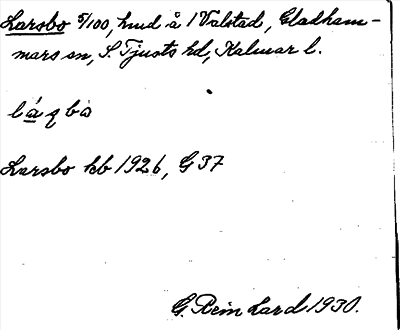 Larsbo 5/100, hmd å 1 Valstad, Gladham-
mars sn, S. Tjusts hd, Kalmar l.
lá q bo
Larsbo kb 1926, G 37
G. Rein hard 1930.